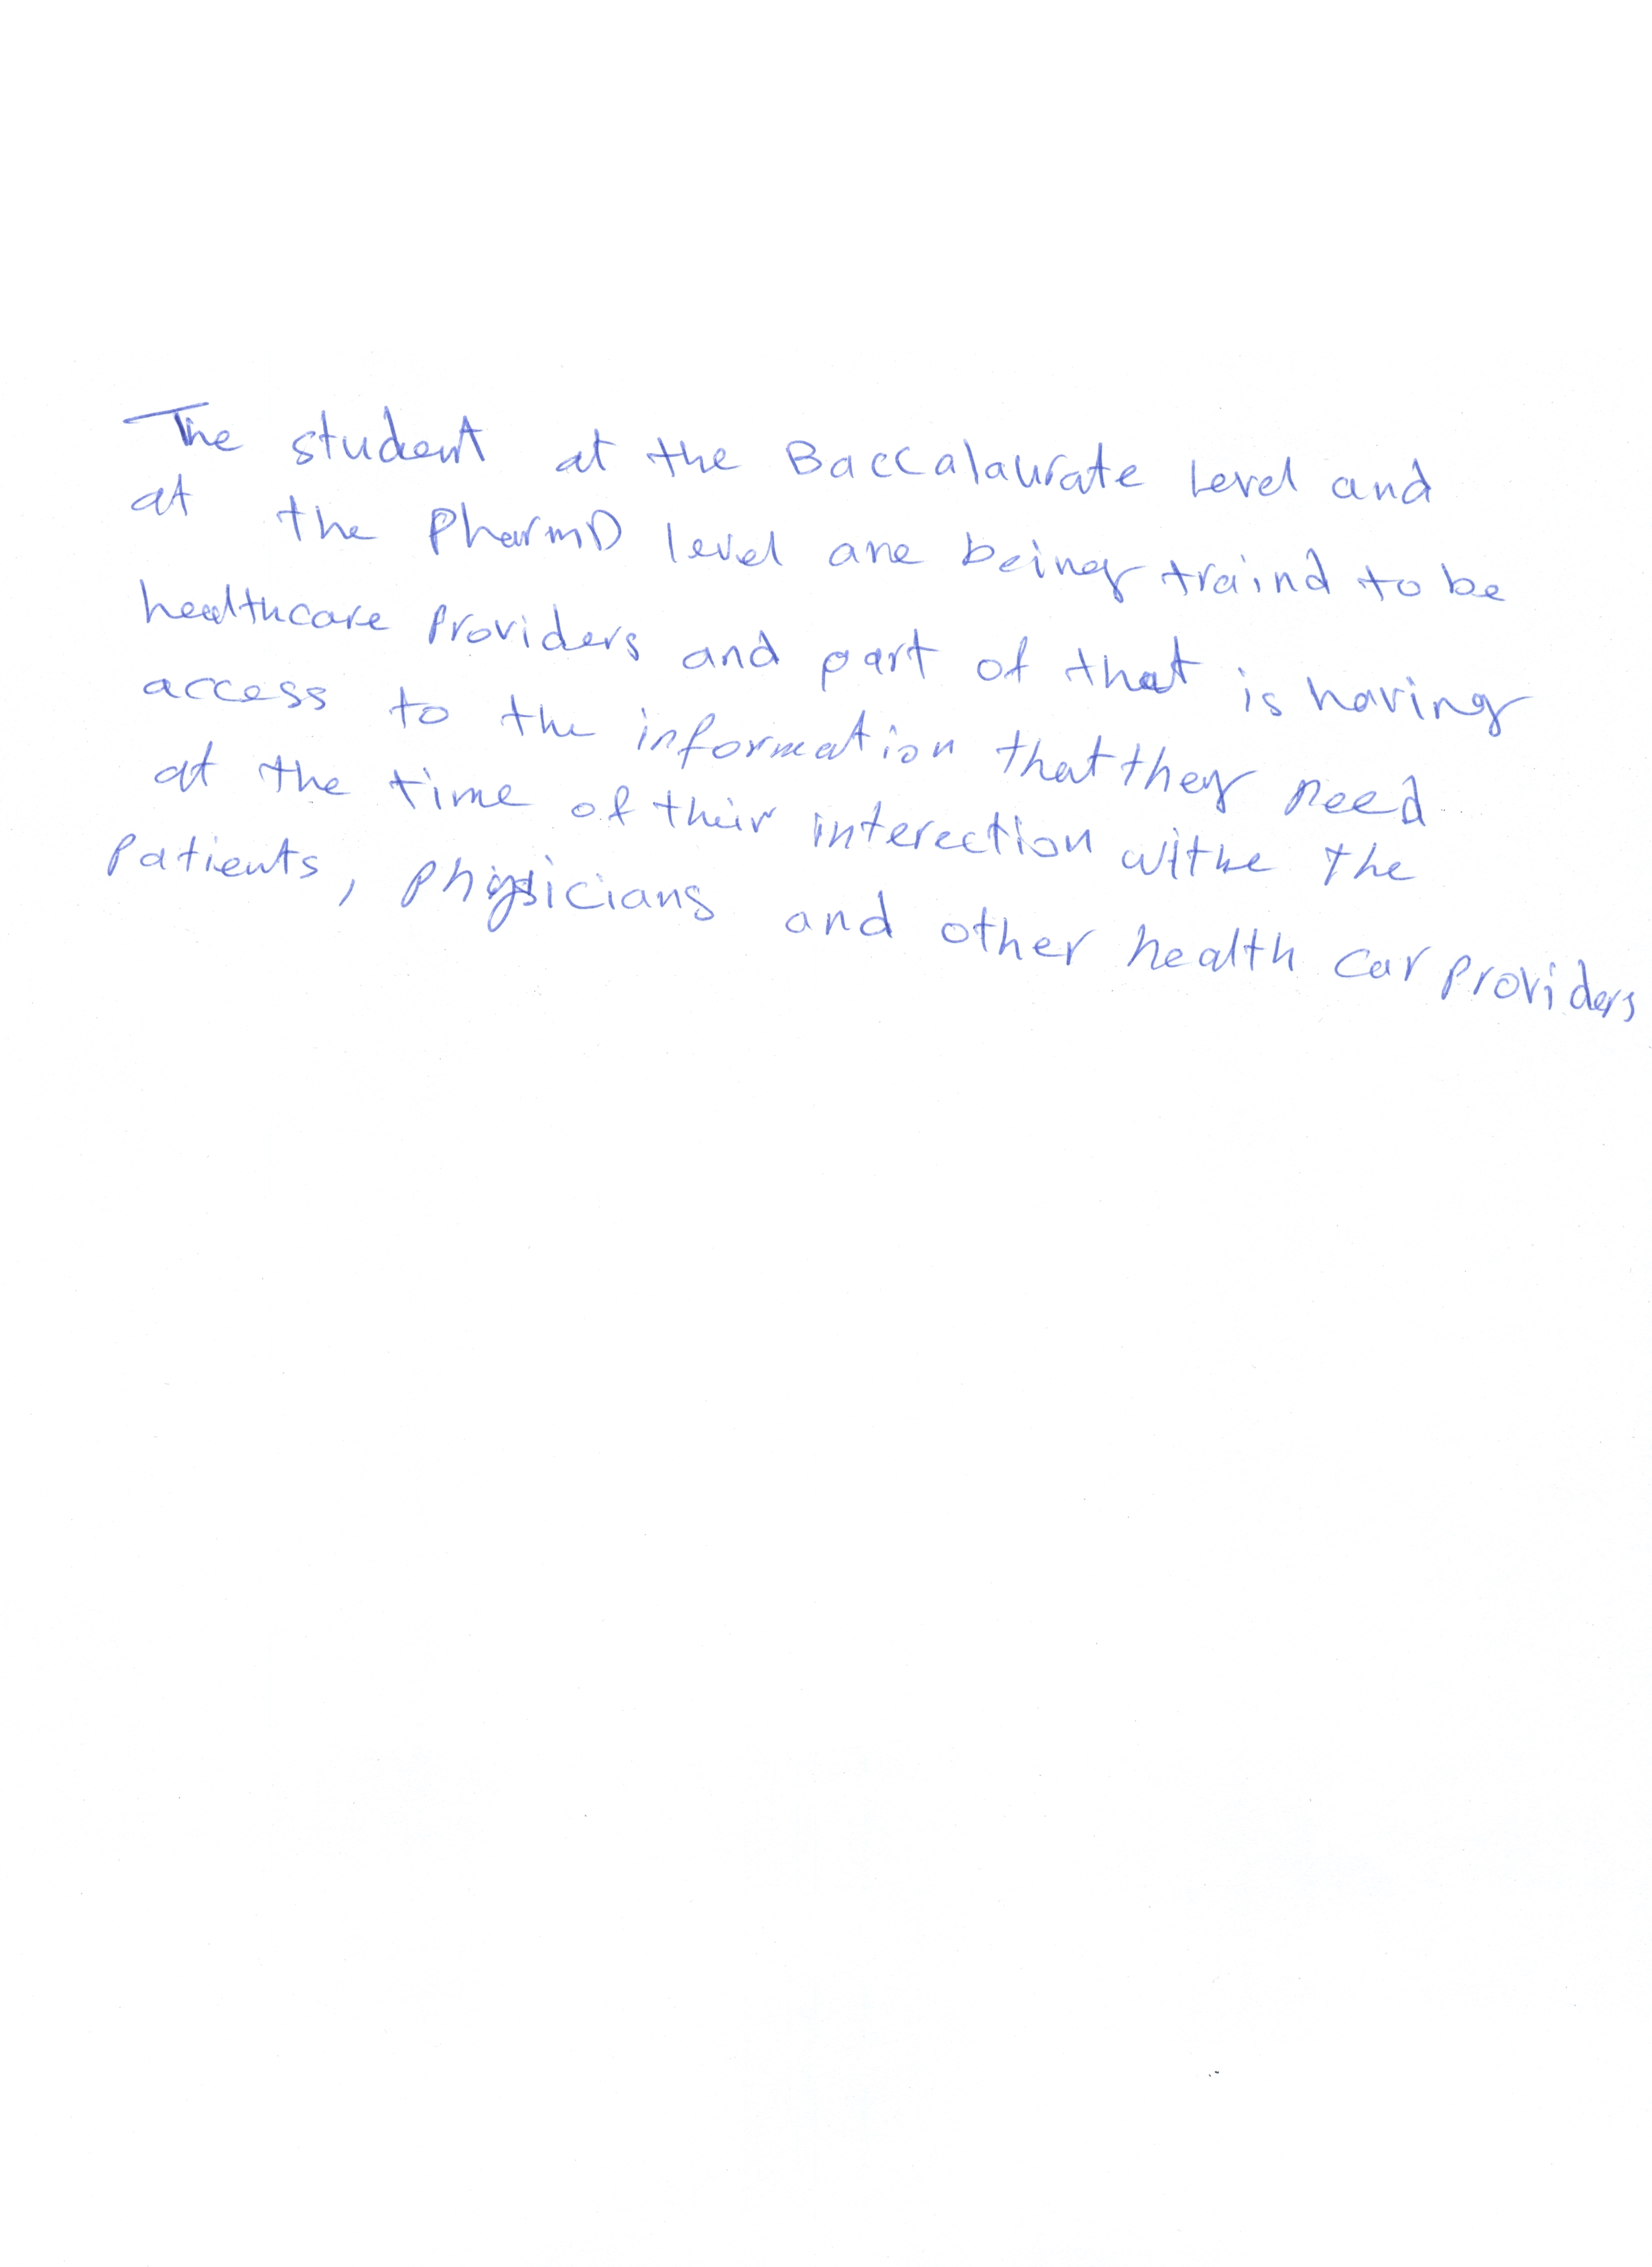 The student at the Baccalaurate Level and
at the PharmD level are being traind to be
healthcare Providers and part of that is having
access to the information that they need
at the time of their interection withe the
Patients, physicians and other health car providers